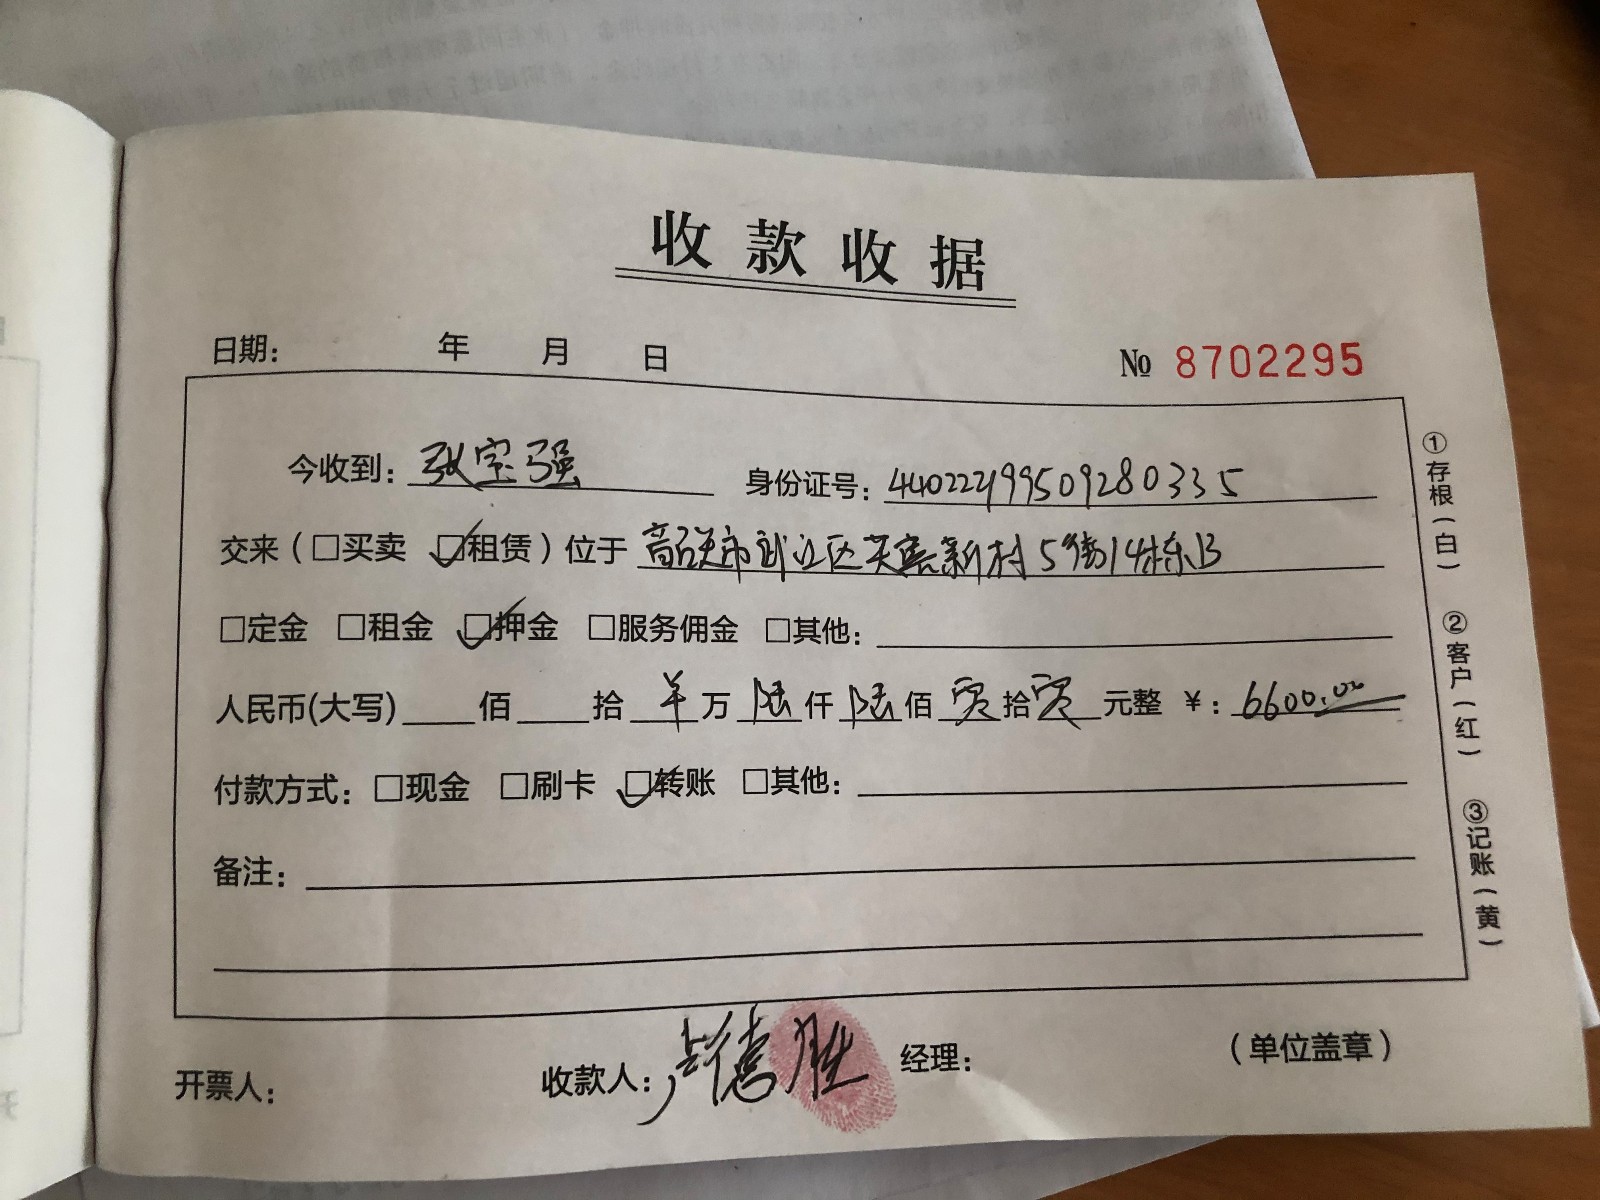 收款收据
日期： 年 月 日 № 8702295
今收到：张宝强 身份证号：440222199509280335
交来（□买卖 ☑租赁）位于 韶关市武江区芙蓉新村5街14栋B
□定金 □租金 ☑押金 □服务佣金 □其他：
人民币(大写) 佰 拾 万 陆仟陆佰零拾零元整 ￥：6600.00
付款方式：□现金 □刷卡 ☑转账 □其他：
备注：
开票人： 收款人：卢德胜 经理： （单位盖章）
①存根（白） ②客户（红） ③记账（黄）